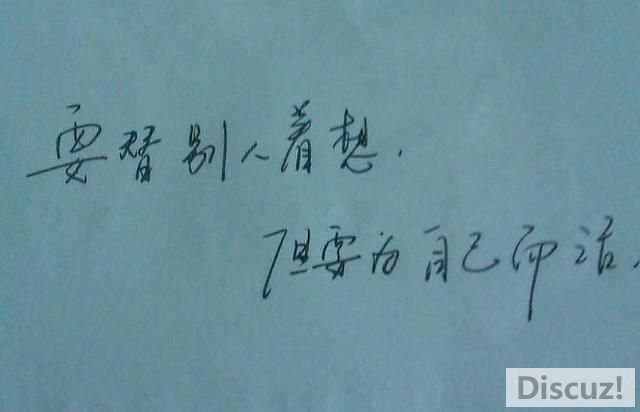 要替别人着想.
但要为自己而活.
Discuz!